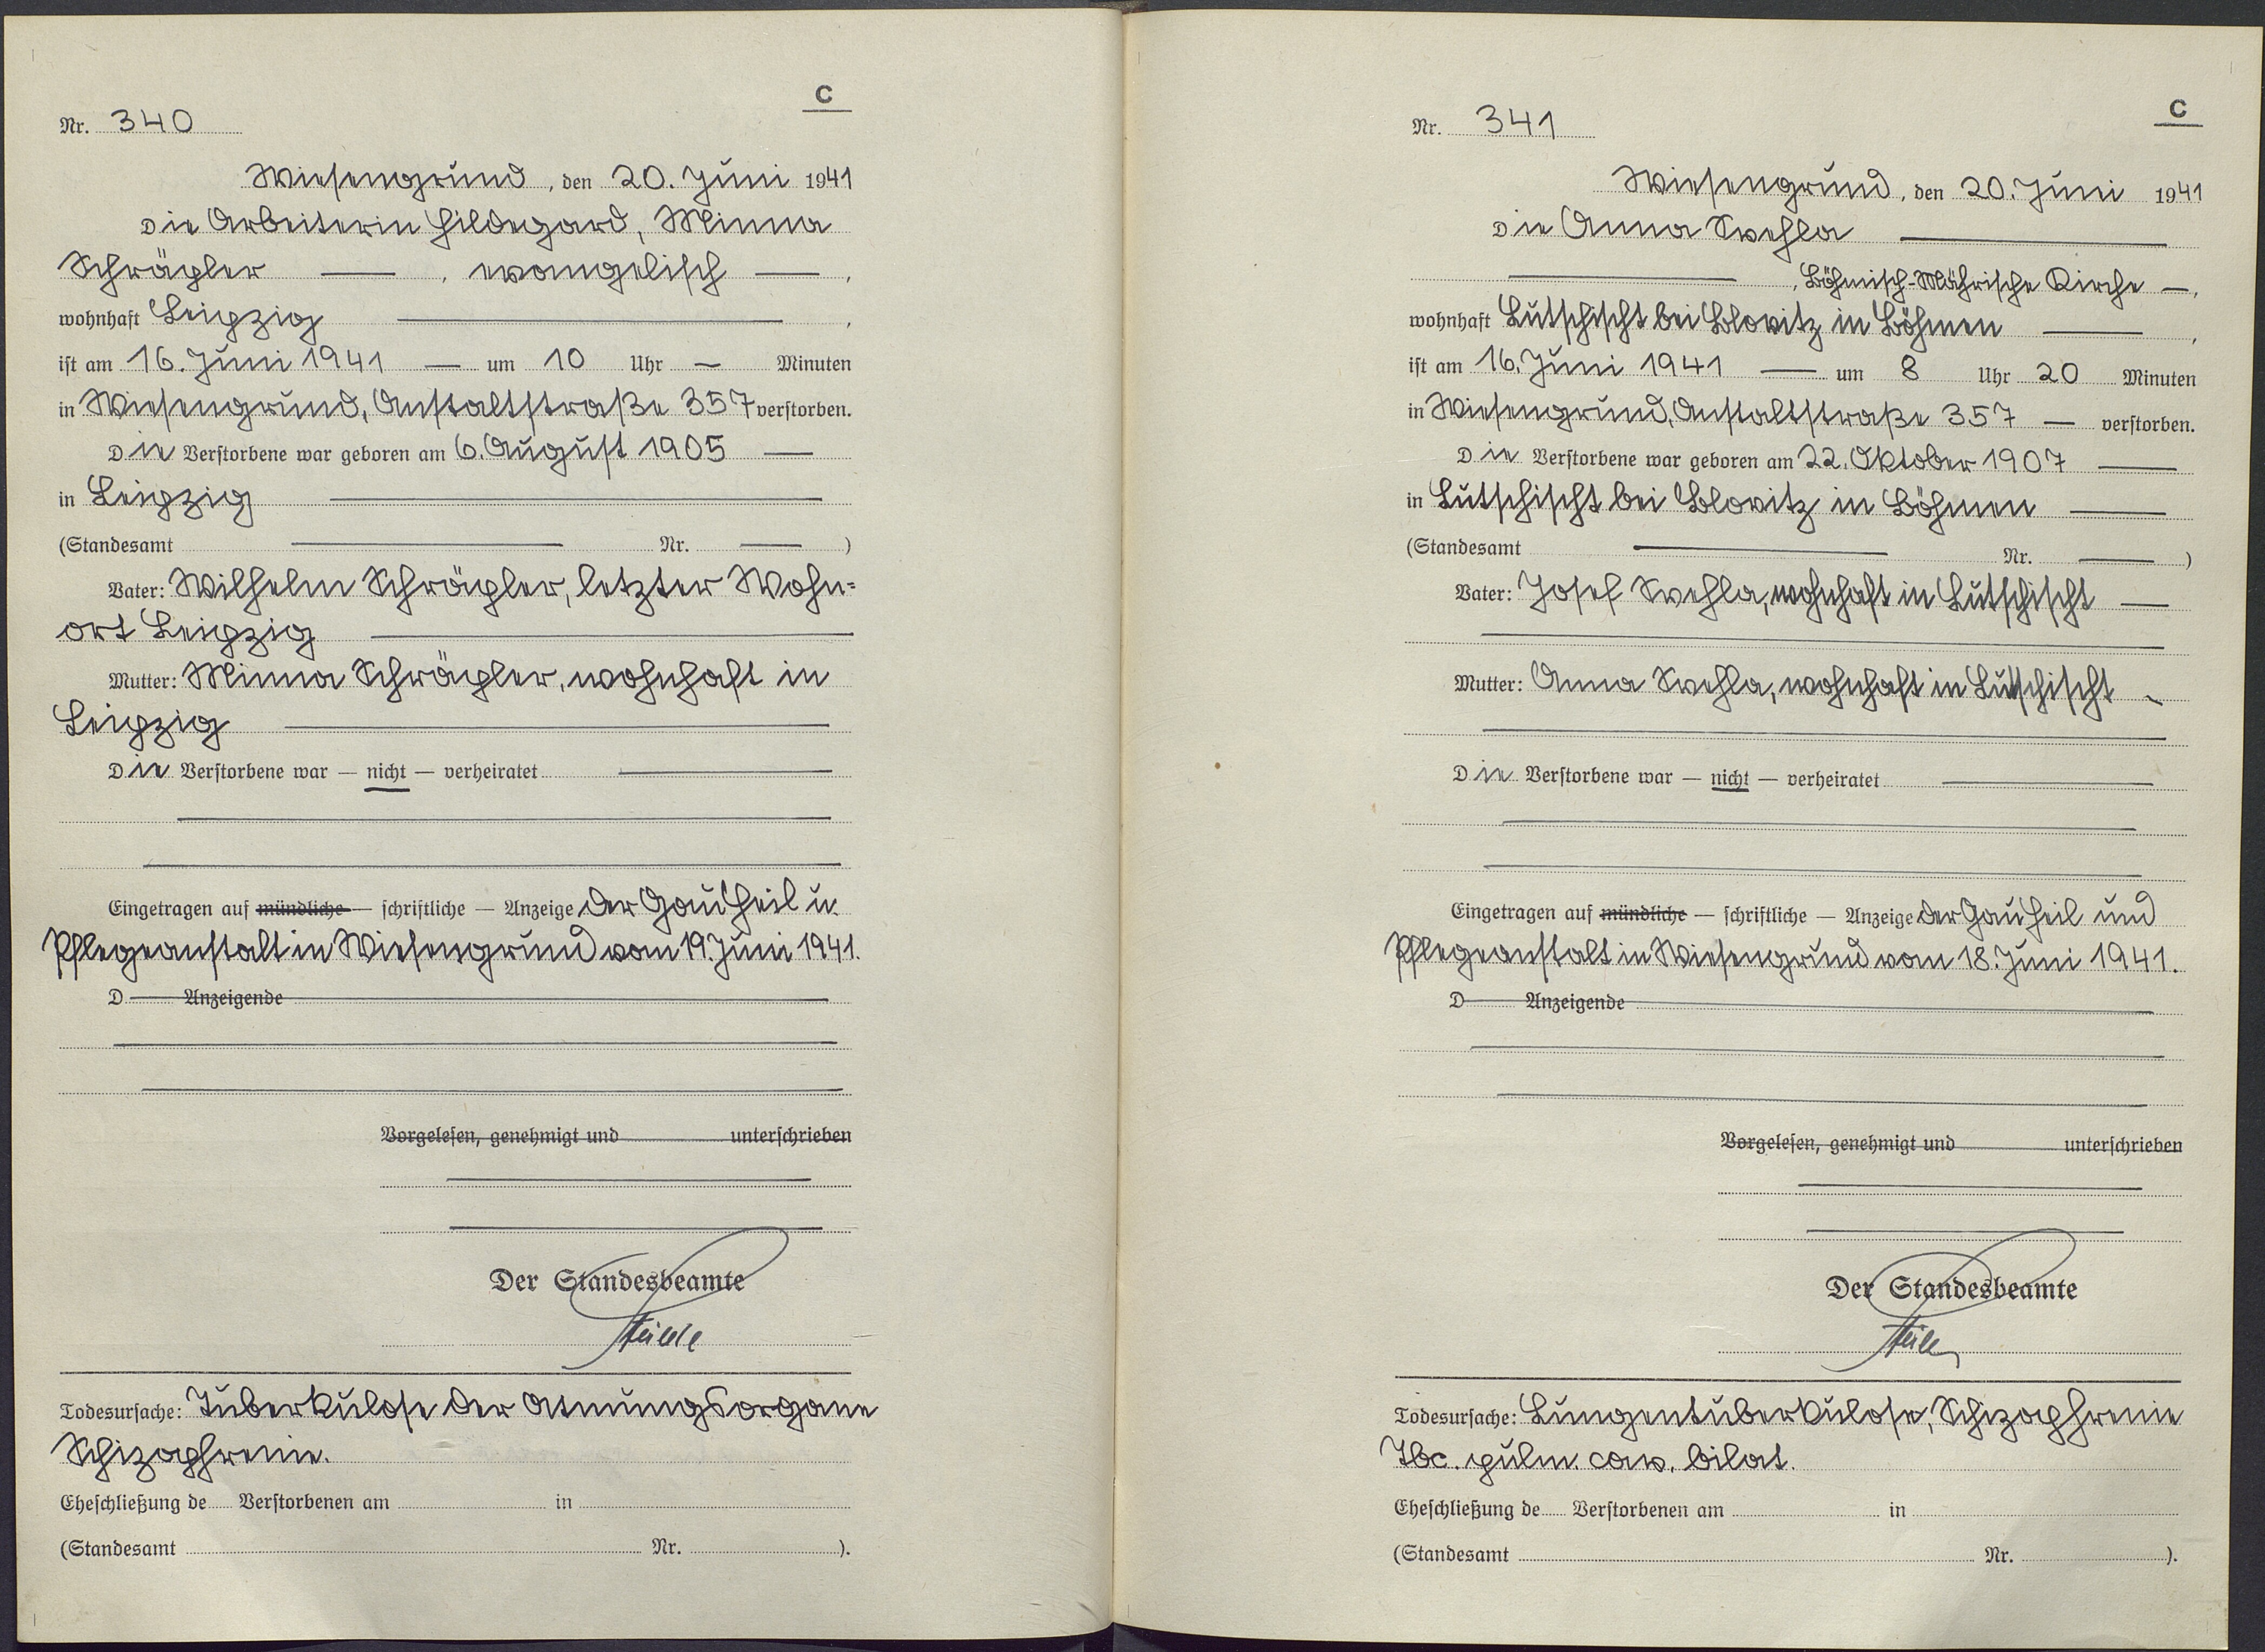 C
Nr. 340
Wiesengrund, den 20. Juni 1941
Die Arbeiterin Hildegard, Minna
Schräpler —, evangelisch —,
wohnhaft Leipzig —,
ist am 16. Juni 1941 — um 10 Uhr — Minuten
in Wiesengrund, Anstaltstraße 357 verstorben.
Die Verstorbene war geboren am 6. August 1905 —
in Leipzig —
(Standesamt — Nr. —)
Vater: Wilhelm Schräpler, letzter Wohn=
ort Leipzig —
Mutter: Minna Schräpler, wohnhaft in
Leipzig —
Die Verstorbene war — nicht — verheiratet —
Eingetragen auf mündliche — schriftliche — Anzeige der Gau Heil u.
Pflegeanstalt in Wiesengrund vom 19. Juni 1941.
D — Anzeigende —
Vorgelesen, genehmigt und — unterschrieben
Der Standesbeamte
Todesursache: Tuberkulose der Atmungsorgane
Schizophrenie.
Eheschließung de Verstorbenen am in
(Standesamt Nr. ).
C
Nr. 341
Wiesengrund, den 20. Juni 1941
Die Anna Swehla —
—, Böhmisch-Mährische Kirche —,
wohnhaft Lutschischt bei Blowitz in Böhmen —,
ist am 16. Juni 1941 — um 8 Uhr 20 Minuten
in Wiesengrund, Anstaltstraße 357 — verstorben.
Die Verstorbene war geboren am 22. Oktober 1907 —
in Lutschischt bei Blowitz in Böhmen —
(Standesamt — Nr. —)
Vater: Josef Swehla, wohnhaft in Lutschischt —
Mutter: Anna Swehla, wohnhaft in Lutschischt -
Die Verstorbene war — nicht — verheiratet —
Eingetragen auf mündliche — schriftliche — Anzeige der Gau Heil und
Pflegeanstalt in Wiesengrund vom 18. Juni 1941.
D — Anzeigende —
Vorgelesen, genehmigt und — unterschrieben
Der Standesbeamte
Todesursache: Lungentuberkulose, Schizophrenie
Tbc. pulm. cav. bilat.
Eheschließung de Verstorbenen am in
(Standesamt Nr. ).